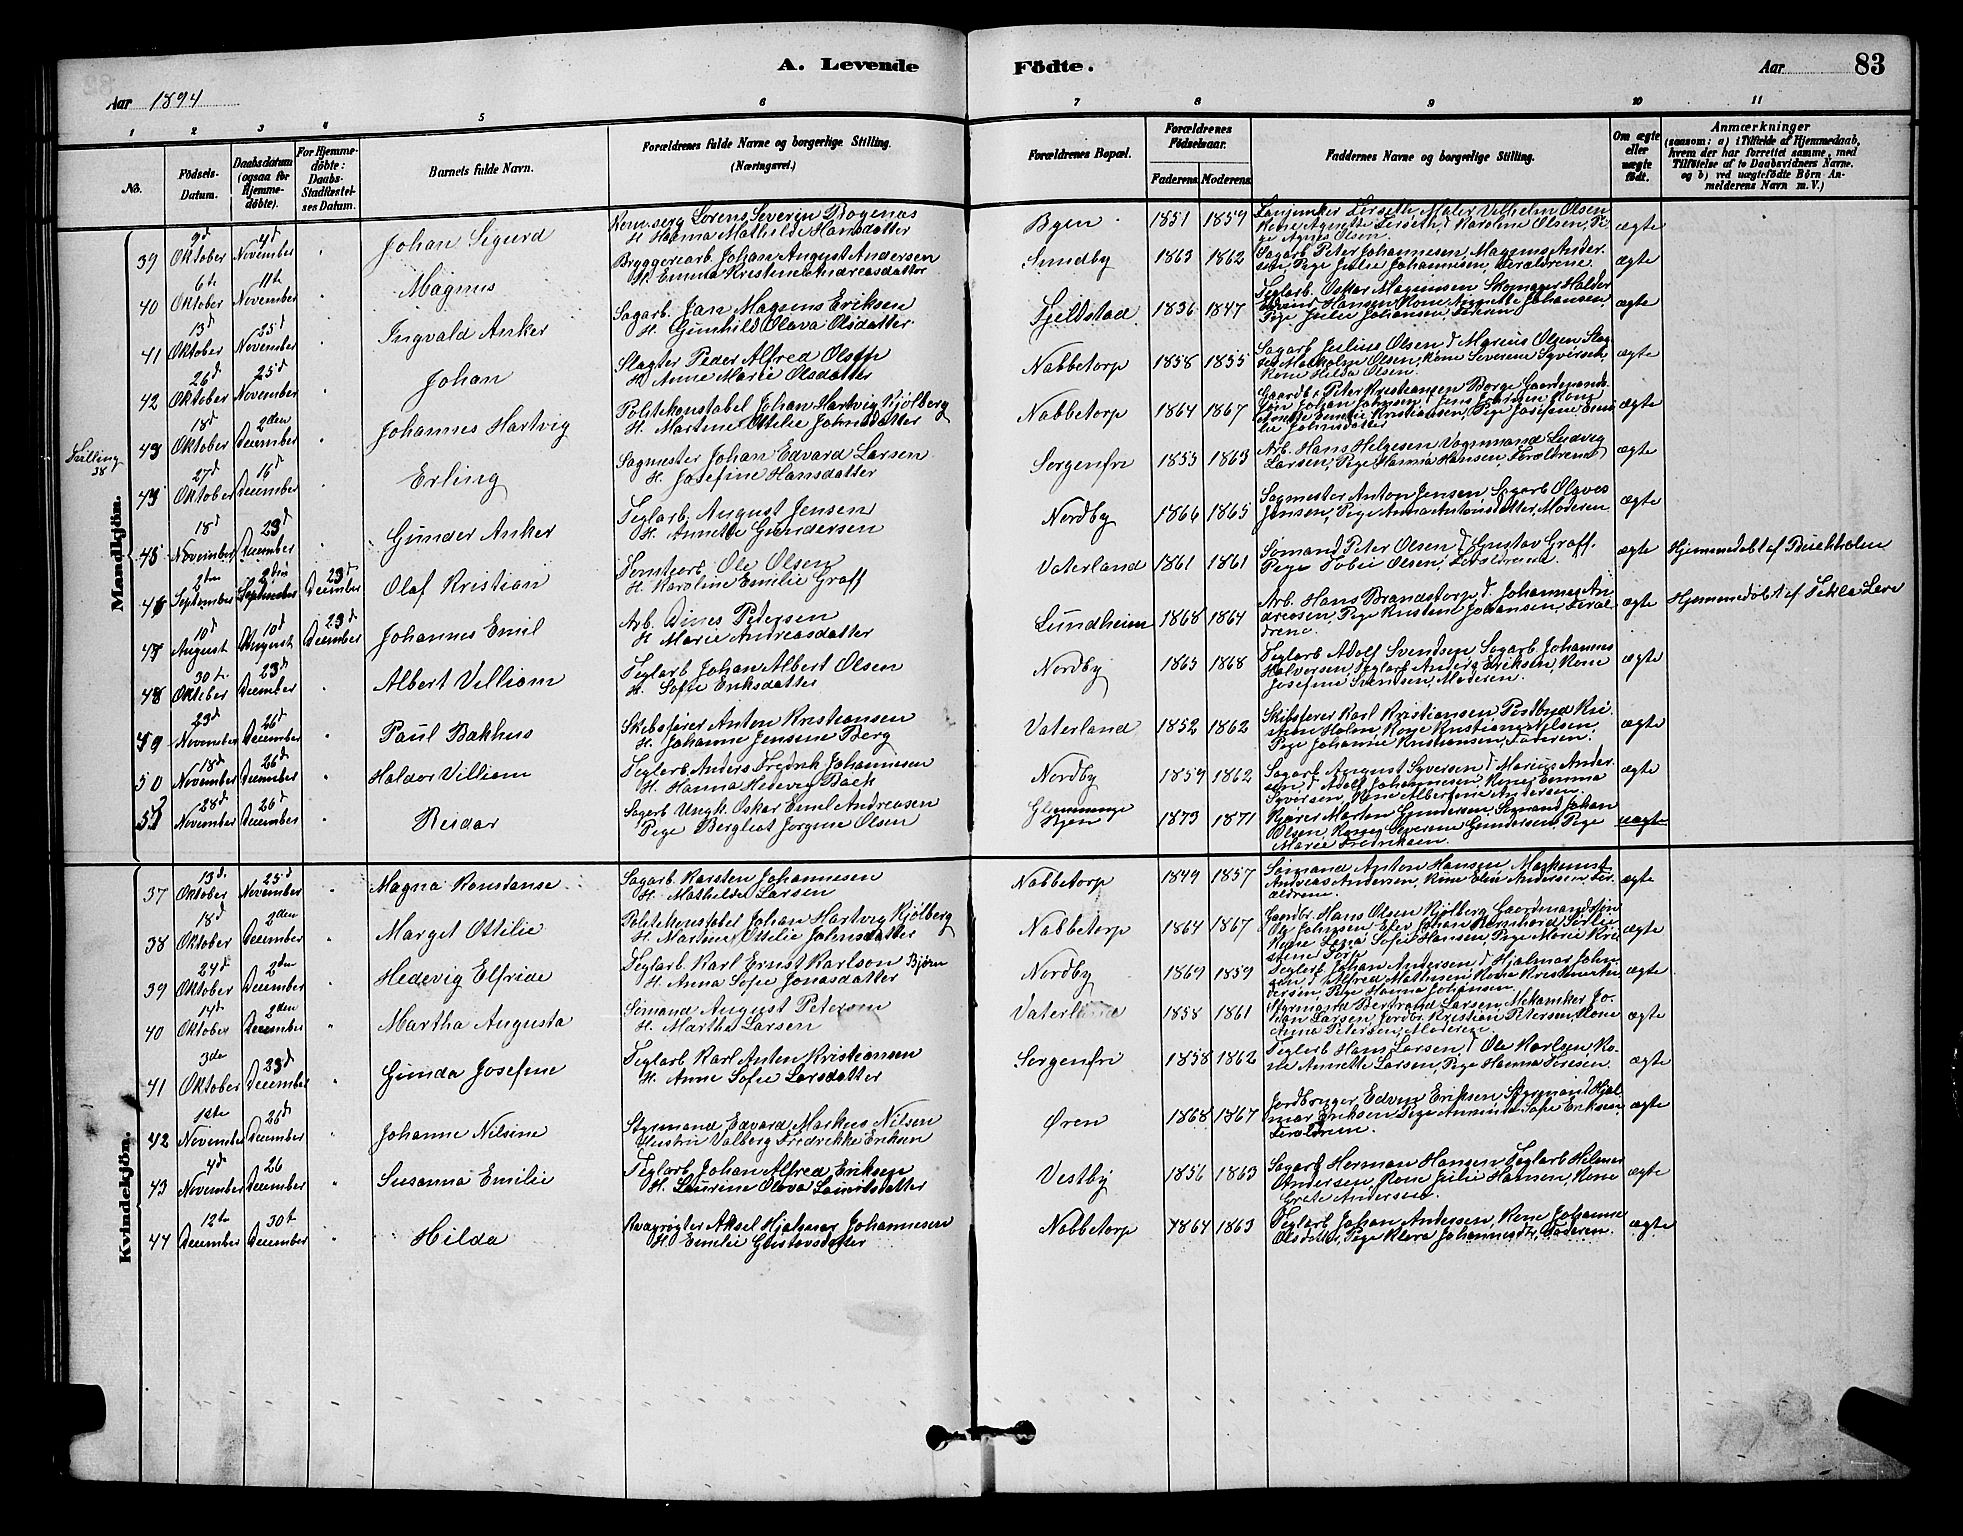 A. Levende
Födte.
Aar 1894
Aar 83
1 2 3 4 5 6 7 8 9 10 11
No.
Födsels-Datum.
Daabsdatum (ogsaa for Hjemme-döbte).
For Hjemme-döbte: Daabs-Stadfæstel-ses Datum.
Barnets fulde Navn.
Forældrenes fulde Navne og borgerlige Stilling.
(Næringsvei.)
Forældrenes Bopæl.
Forældrenes Födselsaar.
Faderens. Moderens.
Faddernes Navne og borgerlige Stilling.
Om ægte eller uægte födt.
Anmærkninger
(saasom: a) i Tilfælde af Hjemmedaab,
hvem der har forrettet samme, med
Tilföielse af to Daabsvidners Navne.
og b) ved uægtefödte Börn An-
melderens Navn m. V.)
Mandkjön.
39 9d Oktober 4d November " Johan Sigurd
Lorens Severin Bogenæs
H. Hanna Mathilde Hansdatter
Byen 1851 1859
Maler Vilhelm Olsen
Karoline Olsen, Pi-
ge Agnes Olsen.
ægte
40 6te Oktober 11te November " Magnus
Bryggeriarb. Johan August Andersen
H. Emma Kristine Andreasdatter
Sundby 1863 1862
Sagarb. Peter Johannesen, Magnus Ander-
sen, Pige Julie Johannesen, Forældrene.
ægte
41 13d Oktober 25d November " Ingvald Anker
Sagarb. Jan Magnus Eriksen
H. Gunhild Olava Olsdatter
Fjeldstad 1856 1847
Teglarb. Oskar Magnussen Skomager Haldor
Hansen Kone Annette Johansen,
Pige Julie Johansen, Faderen
ægte
42 26d Oktober 25d November " Johan
Slagter Peder Alfred Olsen
H. Anne Marie Olsdatter
Nabbetorp 1858 1855
Sagarb. Julius Olsen d Marius Olsen Slag-
ter Malkolm Olsen, Kone Severine Syversen,
Kone Hilda Olsen.
ægte
43 18d Oktober 2den December " Johannes Hartvig
Politekonstabel Johan Hartvig Kjölberg
H. Martine Ottilie Johnsdatter
Nabbetorp 1864 1867
Gaardbr. Peter Kristiansen Borge Gaardmands-
Jens Larsen Kone
Kristiansen, Pige Josefine Emi-
lie Johnsdatter
ægte
Tvilling 38
43 27d Oktober 16d December " Erling
Sagmester Johan Edvard Larsen
H. Josefine Hansdatter
Sorgenfri 1853 1863
Arb. Hans Helgesen Vognmand Ludvig
Larsen, Pige Hanna Hansen, Forældrene
ægte
45 18d November 23d December " Gunder Anker
Teglarb. August Jensen
H. Annette Gundersen
Nordby 1866 1865
Sagmester Anton Jensen, Sagarb. Olaves
Jensen, Pige Anna Antonsdatter, Moderen
ægte
46 2den September 2den September 23d December Olaf Kristian
Tomtearb. Ole Olsen
H. Karoline Emilie Graff
Vaterland 1861 1861
Sömand Peter Olsen d Gustav Graff.
Pige Tobie Olsen, Forældrene.
ægte Hjemmedöbt af
47 10d August 10d August 23d December Johannes Emil
Arb. Dines Petersen
H. Marie Andreasdatter
Lundheim 1868 1864
Arb. Hans Brandstorp d. Johannes An-
dreassen, Pige Kristine Johansen, Foræl-
drene.
ægte Hjemmedöbt af Tekla
48 30te Oktober 23d December " Albert Villiam
Teglarb. Johan Albert Olsen
H. Sofie Eriksdatter
Nordby 1863 1868
Teglarb. Adolf Svendsen Sagarb. Johannes
Halvorsen, Teglarb. Anders Eriksen, Kone
Josefine Svendsen, Moderen.
ægte
49 23d November 26d December " Paul Bakhus
Skibsförer Anton Kristiansen
H. Johanne Jensine Berg
Vaterland 1852 1862
Skibsförer Karl Kristiansen Postbud Kri-
stian Holm, Kone Kristiane Nilsen,
Pige Johanne Kristiansen, Faderen.
ægte
50 18d November 26d December " Haldor Villiam
Teglarb. Anders Fredrik Johannesen
H. Hanna Hedevig Bach
Nordby 1859 1862
Sagarb. August Syversen d Marius Ander-
sen, d Adolf Johannesen, Kone Emma
Syversen, Kone Albertine Andersen.
ægte
28d November 26d December " Reidar
Sagarb. Ungk. Oskar Emil Andreasen
Pige Bergliot Jorgine Olsen
Glemminge
1873 1871
Martin Gundersen, Sömand Johan
Olsen, Kone Severine Gundersen, Pige
Marie Fredriksen.
uægte
Kvindekjön.
37 13d Oktober 25d November " Magna Konstanse
Sagarb. Karsten Johannesen
H. Mathilde Larsen
Nabbetorp 1849 1857
Sömand Anton Hansen, Maskinist
Andreas Andersen, Kone Elen Andersen, For-
ældrene.
ægte
38 18d Oktober 2den December " Marget Ottilie
Politekonstabel Johan Hartvig Kjölberg
H. Martine Ottilie Johnsdatter
Nabbetorp 1864 1867
Gaardbr. Hans Olsen Kjölberg Gaardmandssön
Kone Lena Sofie Hansen, Pige Marie Kri-
stine Torp
ægte
39 24d Oktober 2den December " Hedevig Elfride
Teglarb. Karl Ernst Karlson Björn
H. Anna Sofie Jonasdatter
Nordby 1869 1859
Teglarb. Johan Andersen d Hjalmar Johan-
sen d Alfred Mathisen Kone Kristine An-
dersen, Pige Hanna Johansen.
ægte
40 14d Oktober 2den December " Martha Augusta
Sömand August Petersen
H. Marthe Larsen
Vaterland 1858 1861
Styrmand Bertrand Larsen Mekaniker Jo-
han Larsen, Jordbr. Kristian Petersen, Kone
Anna Petersen, Moderen.
ægte
41 3de Oktober 23d December " Gunda Josefine
Teglarb. Karl Anton Kristiansen
H. Anne Sofie Larsdatter
Sorgenfri 1858 1862
Teglarb. Hans Larsen, d Ole Karlsen Ko-
ne Annette Larsen, Pige Hanna Toresen,
ægte
42 1ste November 26d December " Johanne Nilsine
Styrmand Edvard Markus Nilsen
Hustru Valborg Fredrikke Eriksen
Øren 1868 1867
Jordbruger Edvin Eriksen Styrmand Hjal-
mar Eriksen Pige Sofie Eriksen
Forældrene.
ægte
43 4d November 26 December " Susanna Emilie
Teglarb. Johan Alfred Eriksen
H. Laurine Olava Lauritsdatter
Vestby 1856 1863
Sagarb. Herman Hansen, Teglarb. Helmer
Andersen, Kone Julie Hansen, Kone
Grete Andersen.
ægte
44 12te December 30te December " Hilda
Kvægrögter Aksel Hjalmar Johannesen
H. Emelie Gustavsdatter
Nabbetorp 1864 1863
Teglarb. Johan Andersen, Kone Johanne
Olsdatter, Pige Klara Johannesdtr, Faderen.
ægte